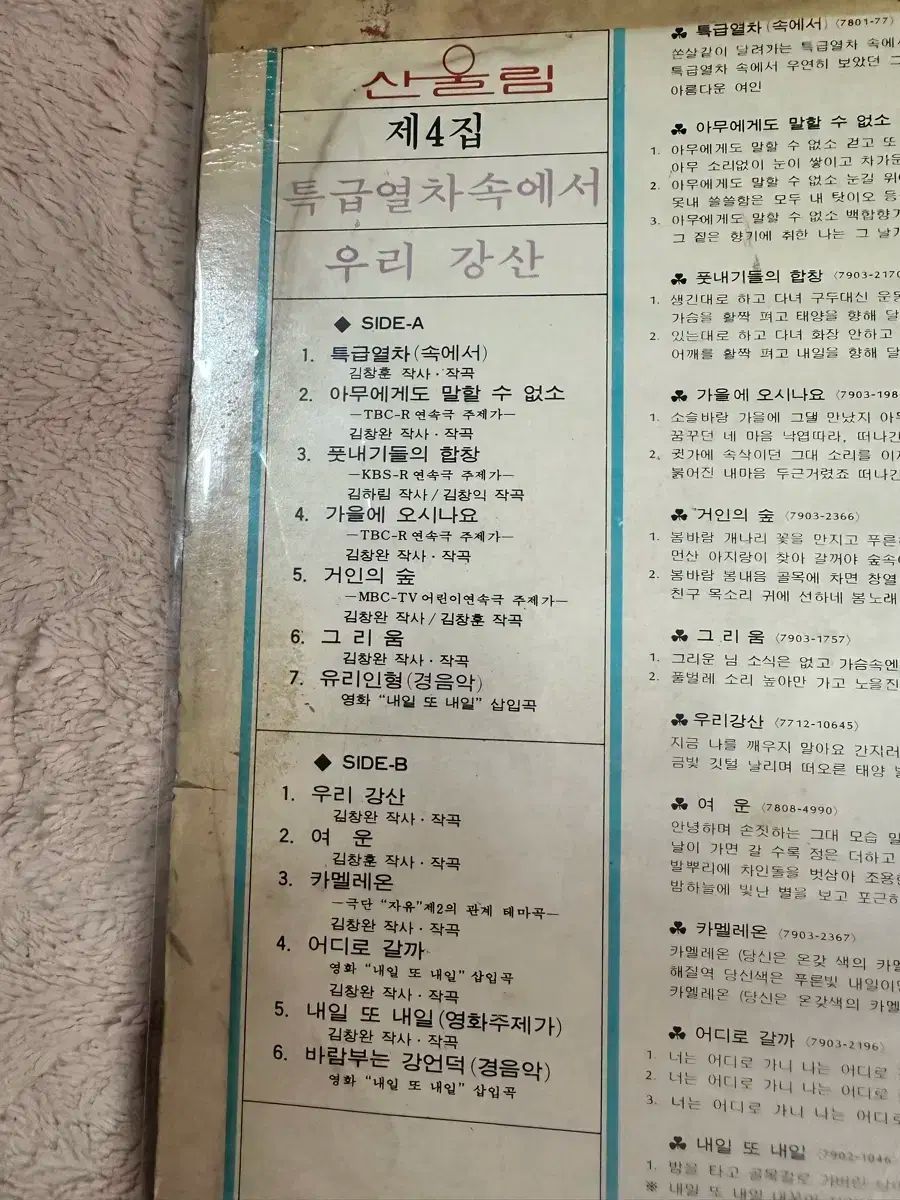 산울림
제4집
특급열차속에서
우리 강산
◆ SIDE-A
1. 특급열차(속에서)
김창훈 작사·작곡
2. 아무에게도 말할 수 없소
—TBC-R 연속극 주제가—
김창완 작사·작곡
3. 풋내기들의 합창
—KBS-R 연속극 주제가—
김하림 작사/김창익 작곡
4. 가을에 오시나요
—TBC-R 연속극 주제가—
김창완 작사·작곡
5. 거인의 숲
—MBC-TV 어린이연속극 주제가—
김창완 작사/김창훈 작곡
6. 그 리 움
김창완 작사·작곡
7. 유리인형(경음악)
영화 "내일 또 내일" 삽입곡
◆ SIDE-B
1. 우리 강산
김창완 작사·작곡
2. 여 운
김창훈 작사·작곡
3. 카멜레온
—극단 "자유"제2의 관계 테마곡—
김창완 작사·작곡
4. 어디로 갈까
영화 "내일 또 내일" 삽입곡
김창완 작사·작곡
5. 내일 또 내일(영화주제가)
김창완 작사·작곡
6. 바람부는 강언덕(경음악)
영화 "내일 또 내일" 삽입곡
♣ 특급열차(속에서) (7801-77)
쏜살같이 달려가는 특급열차 속에서
특급열차 속에서 우연히 보았던 그
아름다운 여인
♣ 아무에게도 말할 수 없소
1. 아무에게도 말할 수 없소 걷고 또
아무 소리없이 눈이 쌓이고 차가운
2. 아무에게도 말할 수 없소 눈길 위에
못내 쓸쓸함은 모두 내 탓이오 등
3. 아무에게도 말할 수 없소 백합향기
그 짙은 향기에 취한 나는 그 날
♣ 풋내기들의 합창 (7903-2170
1. 생긴대로 하고 다녀 구두대신 운동
가슴을 활짝 펴고 태양을 향해 달
2. 있는대로 하고 다녀 화장 안하고
어깨를 활짝 펴고 내일을 향해 달
♣ 가을에 오시나요 (7903-198
1. 소슬바람 가을에 그댈 만났지 아무
꿈꾸던 네 마음 낙엽따라, 떠나간
2. 귓가에 속삭이던 그대 소리를 이제
붉어진 내마음 두근거렸죠 떠나간
♣ 거인의 숲 (7903-2366)
1. 봄바람 개나리 꽃을 만지고 푸른
먼산 아지랑이 찾아 갈꺼야 숲속
2. 봄바람 봄내음 골목에 차면 창열
친구 목소리 귀에 선하네 봄노래
♣ 그 리 움 (7903-1757)
1. 그리운 님 소식은 없고 가슴속엔
2. 풀벌레 소리 높아만 가고 노을진
♣ 우리강산 (7712-10645)
지금 나를 깨우지 말아요 간지러
금빛 깃털 날리며 떠오른 태양
♣ 여 운 (7808-4990)
안녕하며 손짓하는 그대 모습 멀
날이 가면 갈 수록 정은 더하고
발뿌리에 차인돌을 벗삼아 조용한
밤하늘에 빛난 별을 보고 포근하
♣ 카멜레온 (7903-2367)
카멜레온 (당신은 온갖 색의 카멜
해질역 당신색은 푸른빛 내일이면
카멜레온 (당신은 온갖색의 카멜
♣ 어디로 갈까 (7903-2196)
1. 너는 어디로 가니 나는 어디로
2. 너는 어디로 가니 나는 어디로
3. 너는 어디로 가니 나는 어디로
♣ 내일 또 내일 (7902-1046
1. 밤을 타고 골목길로 가버린
※ 내일 또 내일